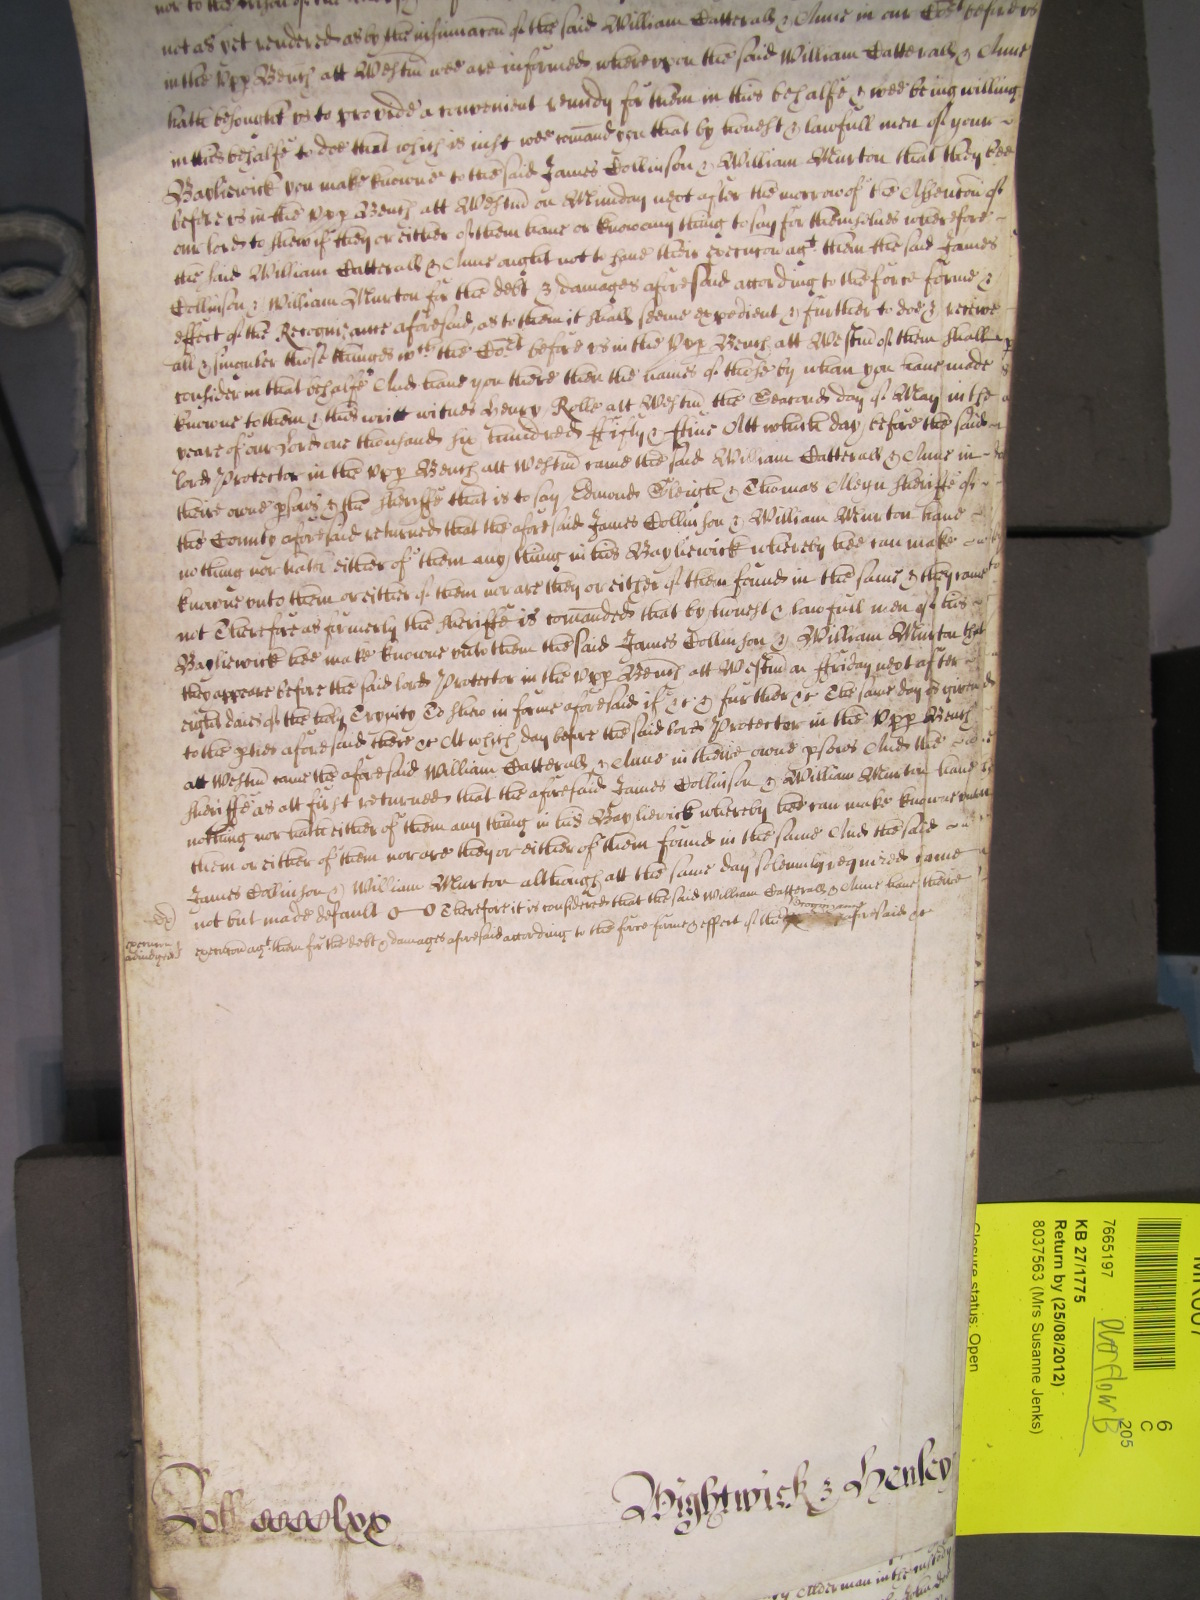 nor to the
not as yet rendered as by the insinuacon of the said William Catterall & Anne in our Cort before us
in the Upp Bench att Westm wee are informed whereupon the said William Catterall & Anne
hath besought us to provide a convenient remidy for them in this behalfe & wee being willing
in this behalfe to doe that which is iust wee comand you that by honest & lawfull men of your
Bayliewick you make knowne to the said James Collinson & William Murton that they bee
before us in the Upp Bench att Westm on Munday next after the morrow of the Assention of
our lord to shew if they or either of them have or know any thing to say for themselves wherefore
the said William Catterall & Anne ought not to have their execucon agt them the said James
Collinson & William Murton for the debt & damages aforesaid according to the force forme &
effect of the Recognizance aforesaid, as to them it shall seeme expedient & further to doe & receive
all & singuler those thinges wch the Cort before us in the Upp Bench att Westm of them shall
consider in that behalfe And have you there then the names of those by whom you have made
knowne to them & this writt witnes Henry Rolle att Westm the Second day of May in the
yeare of our Lord one thousand six hundred ffifty & ffive Att which day before the said
lord Protector in the Upp Bench att Westm came the said William Catterall & Anne in
their owne psons & the sheriffe that is to say Edmond Sleigh & Thomas Aleyn sheriffe of
the County aforesaid returned that the aforesaid James Collinson & William Murton have
nothing nor hath either of them any thing in his Bayliewick whereby hee can make
knowne unto them or either of them nor are they or either of them found in the same & they came
not Therefore as formerly the sheriffe is comanded that by honest & lawfull men of his
Bayliewick hee make knowne unto them the said James Collinson & William Murton that
they appeare before the said lord Protector in the Upp Bench att Westm on ffriday next after
eight daies of the holy Trynity To shew in forme aforesaid if &c & further &c The same day is given
to the pties aforesaid there &c At which day before the said lord Protector in the Upp Bench
att Westm came the aforesaid William Catterall & Anne in theire owne psons And the
sheriffe as att first returned that the aforesaid James Collinson & William Murton have
nothing nor hath either of them any thing in his Bayliewick whereby hee can make knowne unto
them or either of them nor are they or either of them found in the same And the said
James Collinson & William Murton although att the same day solemnly required came
not but made default Therefore it is considered that the said William Catterall & Anne have theire
execucon agt them for the debt & damages aforesaid according to the force forme & effect of the Recognizance aforesaid &c
execucon
adiudged
Roll lxx
Wightwick & Henley
Alderman in the custody
7665197
KB 27/1775
Return by (25/08/2012)
8037563 (Mrs Susanne Jenks)
Closure status: Open
Overflow B
205
6
C